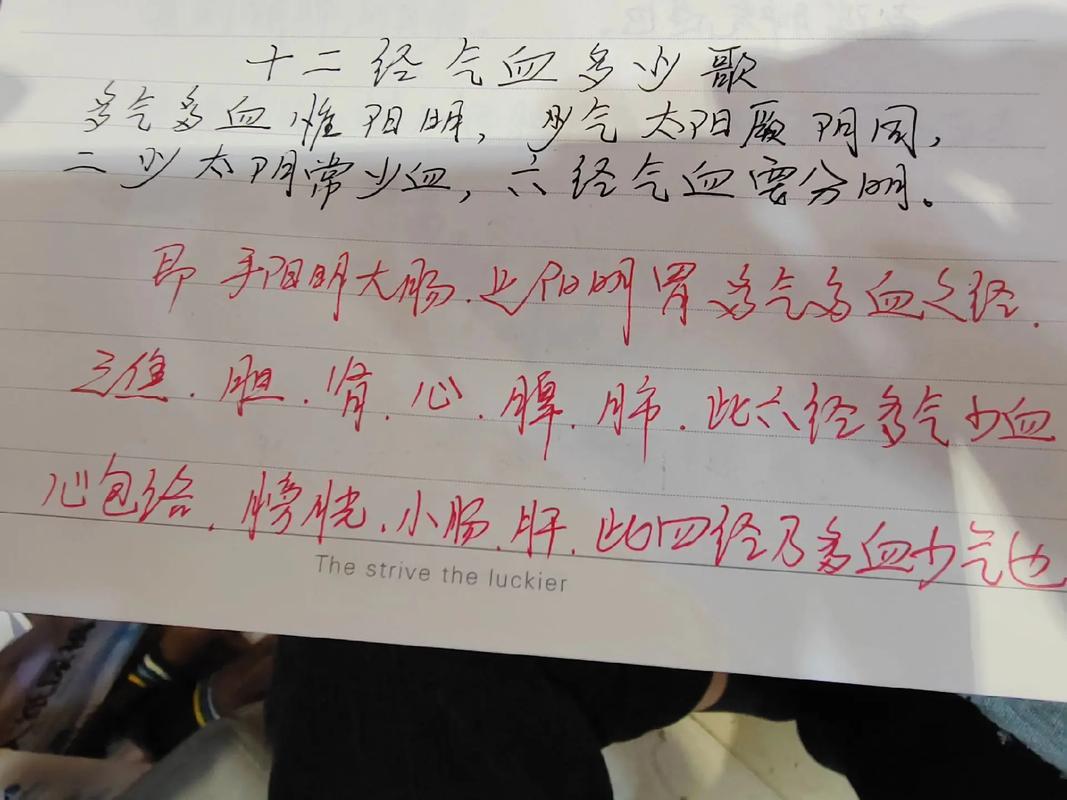 十二经气血多少歌
多气多血惟阳明，少气太阳厥阴同，
二少太阴常少血，六经气血需分明。
即手阳明大肠.足阳明胃多气多血之经.
三焦.胆.肾.心.脾.肺.此六经多气少血
心包络.膀胱.小肠.肝.此四经乃多血少气也
The strive the luckier